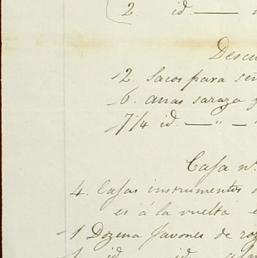 2 id. —
Descu
2. Sacos para sem
6. anas saraza f
7 1/4 id. — " —
Caja n.
4. Cajas instrumentos d
es á la vuelta e
1 Dozena Javones de roz
1 id. id.